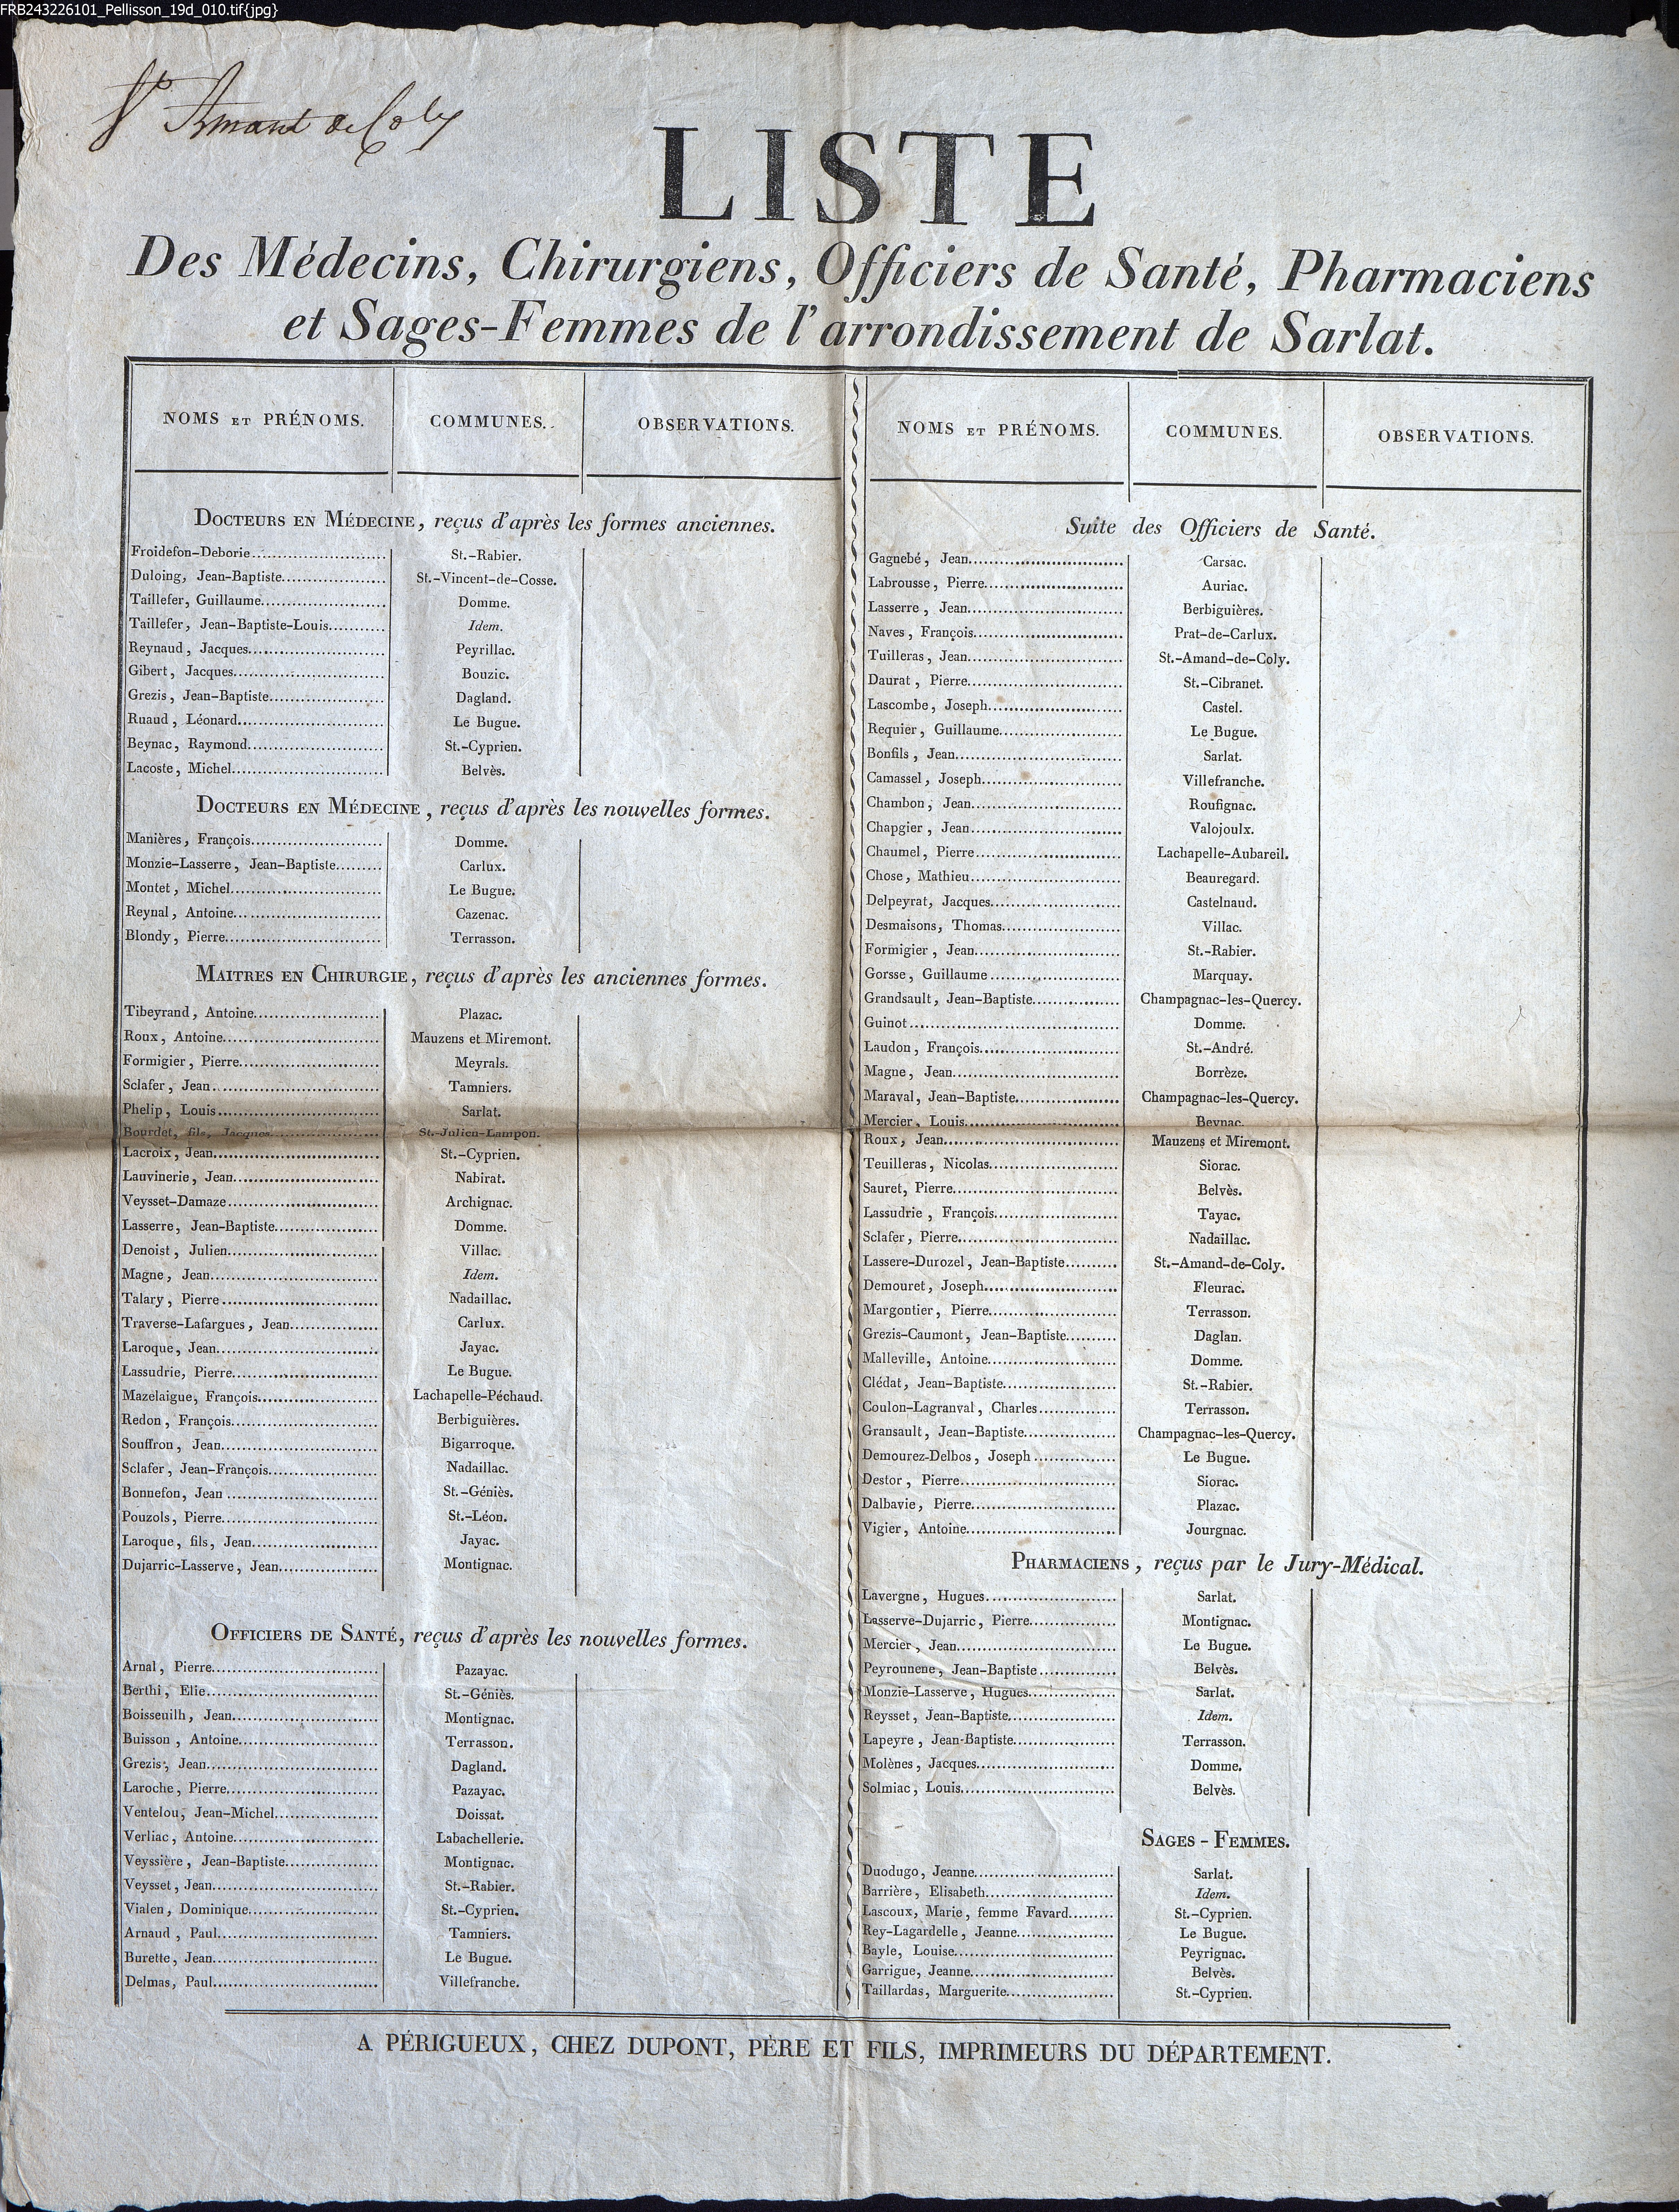 FRB243226101_Pellisson_19d_010.tif{jpg}
St Amant de Coly
LISTE
Des Médecins, Chirurgiens, Officiers de Santé, Pharmaciens
et Sages-Femmes de l'arrondissement de Sarlat.
NOMS ET PRÉNOMS. COMMUNES. OBSERVATIONS.
DOCTEURS EN MÉDECINE, reçus d'après les formes anciennes.
Froidefon-Deborie St.-Rabier.
Duloing, Jean-Baptiste St.-Vincent-de-Cosse.
Taillefer, Guillaume Domme.
Taillefer, Jean-Baptiste-Louis Idem.
Reynaud, Jacques Peyrillac.
Gibert, Jacques Bouzic.
Grezis, Jean-Baptiste Dagland.
Ruaud, Léonard Le Bugue.
Beynac, Raymond St.-Cyprien.
Lacoste, Michel Belvès.
DOCTEURS EN MÉDECINE, reçus d'après les nouvelles formes.
Manières, François Domme.
Monzie-Lasserre, Jean-Baptiste Carlux.
Montet, Michel Le Bugue.
Reynal, Antoine Cazenac.
Blondy, Pierre Terrasson.
MAITRES EN CHIRURGIE, reçus d'après les anciennes formes.
Tibeyrand, Antoine Plazac.
Roux, Antoine Mauzens et Miremont.
Formigier, Pierre Meyrals.
Sclafer, Jean Tamniers.
Phelip, Louis Sarlat.
Bourdet, fils, Jacques St.-Julien-Lampon.
Lacroix, Jean St.-Cyprien.
Lauvinerie, Jean Nabirat.
Veysset-Damaze Archignac.
Lasserre, Jean-Baptiste Domme.
Denoist, Julien Villac.
Magne, Jean Idem.
Talary, Pierre Nadaillac.
Traverse-Lafargues, Jean Carlux.
Laroque, Jean Jayac.
Lassudrie, Pierre Le Bugue.
Mazelaigue, François Lachapelle-Péchaud.
Redon, François Berbiguières.
Souffron, Jean Bigarroque.
Sclafer, Jean-François Nadaillac.
Bonnefon, Jean St.-Géniès.
Pouzols, Pierre St.-Léon.
Laroque, fils, Jean Jayac.
Dujarric-Lasserve, Jean Montignac.
OFFICIERS DE SANTÉ, reçus d'après les nouvelles formes.
Arnal, Pierre Pazayac.
Berthi, Elie St.-Géniès.
Boisseuilh, Jean Montignac.
Buisson, Antoine Terrasson.
Grezis, Jean Dagland.
Laroche, Pierre Pazayac.
Ventelou, Jean-Michel Doissat.
Verliac, Antoine Labachellerie.
Veyssière, Jean-Baptiste Montignac.
Veysset, Jean St.-Rabier.
Vialen, Dominique St.-Cyprien.
Arnaud, Paul Tamniers.
Burette, Jean Le Bugue.
Delmas, Paul Villefranche.
NOMS ET PRÉNOMS. COMMUNES. OBSERVATIONS.
Suite des Officiers de Santé.
Gagnebé, Jean Carsac.
Labrousse, Pierre Auriac.
Lasserre, Jean Berbiguières.
Naves, François Prat-de-Carlux.
Tuilleras, Jean St.-Amand-de-Coly.
Daurat, Pierre St.-Cibranet.
Lascombe, Joseph Castel.
Requier, Guillaume Le Bugue.
Bonfils, Jean Sarlat.
Camassel, Joseph Villefranche.
Chambon, Jean Roufignac.
Chapgier, Jean Valojoulx.
Chaumel, Pierre Lachapelle-Aubareil.
Chose, Mathieu Beauregard.
Delpeyrat, Jacques Castelnaud.
Desmaisons, Thomas Villac.
Formigier, Jean St.-Rabier.
Gorsse, Guillaume Marquay.
Grandsault, Jean-Baptiste Champagnac-les-Quercy.
Guinot Domme.
Laudon, François St.-André.
Magne, Jean Borrèze.
Maraval, Jean-Baptiste Champagnac-les-Quercy.
Mercier, Louis Beynac.
Roux, Jean Mauzens et Miremont.
Teuilleras, Nicolas Siorac.
Sauret, Pierre Belvès.
Lassudrie, François Tayac.
Sclafer, Pierre Nadaillac.
Lassere-Durozel, Jean-Baptiste St.-Amand-de-Coly.
Demouret, Joseph Fleurac.
Margontier, Pierre Terrasson.
Grezis-Caumont, Jean-Baptiste Daglan.
Malleville, Antoine Domme.
Clédat, Jean-Baptiste St.-Rabier.
Coulon-Lagranval, Charles Terrasson.
Gransault, Jean-Baptiste Champagnac-les-Quercy.
Demourez-Delbos, Joseph Le Bugue.
Destor, Pierre Siorac.
Dalbavie, Pierre Plazac.
Vigier, Antoine Jourgnac.
PHARMACIENS, reçus par le Jury-Médical.
Lavergne, Hugues Sarlat.
Lasserve-Dujarric, Pierre Montignac.
Mercier, Jean Le Bugue.
Peyrounene, Jean-Baptiste Belvès.
Monzie-Lasserve, Hugues Sarlat.
Reysset, Jean-Baptiste Idem.
Lapeyre, Jean-Baptiste Terrasson.
Molènes, Jacques Domme.
Solmiac, Louis Belvès.
SAGES-FEMMES.
Duodugo, Jeanne Sarlat.
Barrière, Elisabeth Idem.
Lascoux, Marie, femme Favard St.-Cyprien.
Rey-Lagardelle, Jeanne Le Bugue.
Bayle, Louise Peyrignac.
Garrigue, Jeanne Belvès.
Taillardas, Marguerite St.-Cyprien.
A PÉRIGUEUX, CHEZ DUPONT, PÈRE ET FILS, IMPRIMEURS DU DÉPARTEMENT.